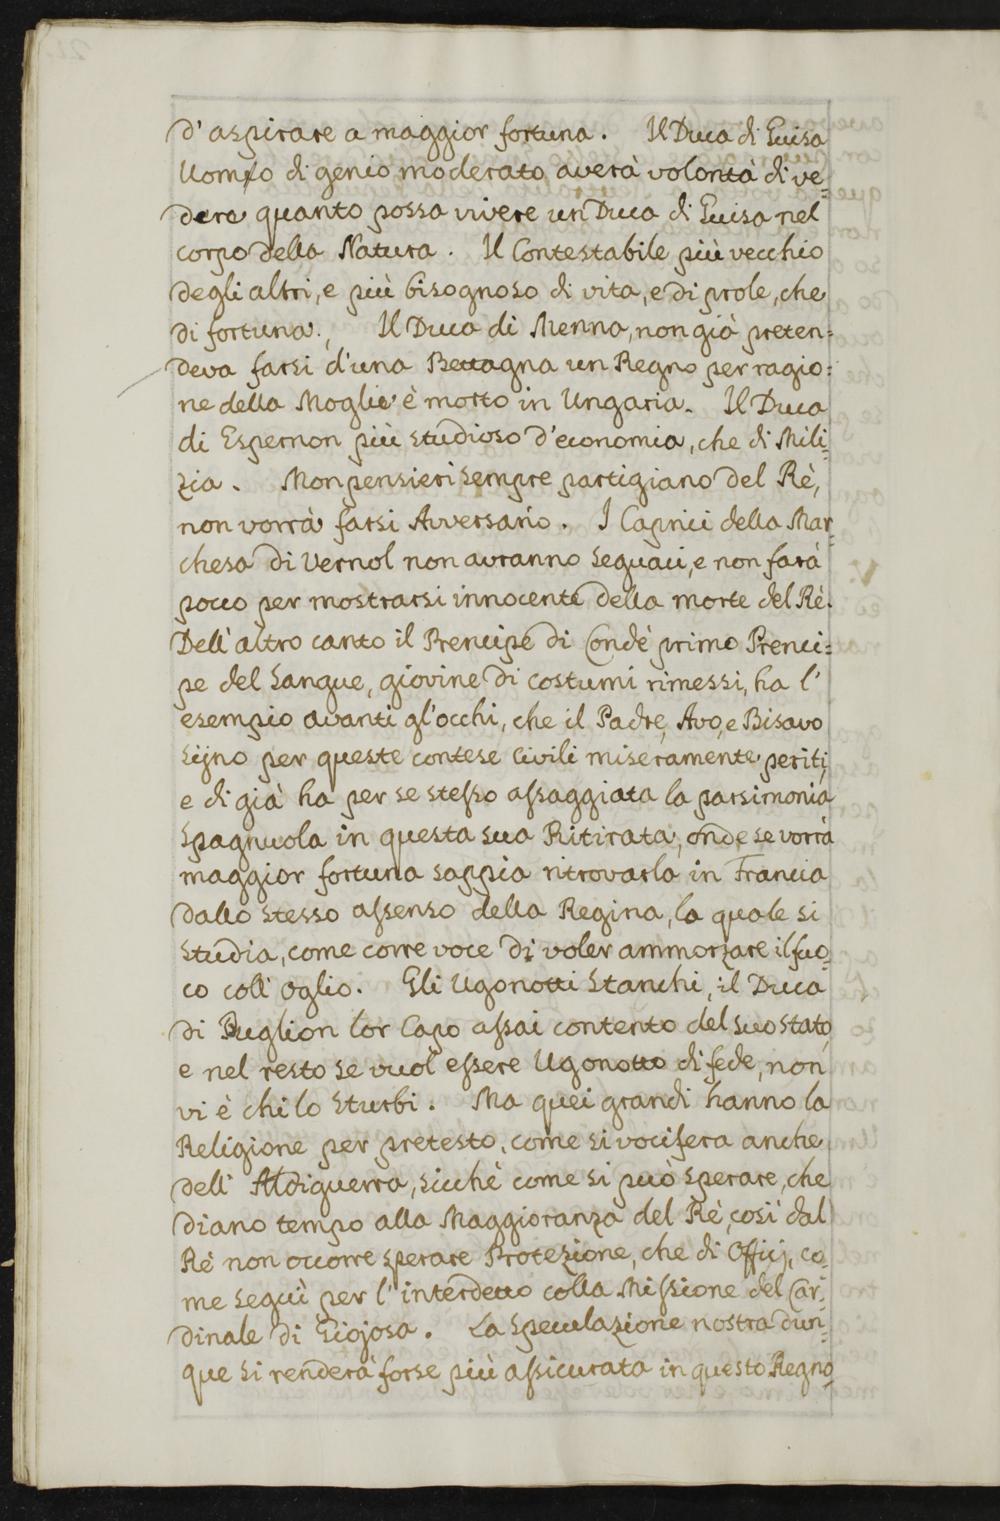 d'aspirare a maggior fortuna. Il Duca di Guisa
Uomo di genio moderato averà volontà di ve=
dere quanto possa vivere un Duca di Guisa nel
corpo della Natura. Il Contestabile più vecchio
degli altri, e più bisognoso di vita, e di prole, che
di fortuna., Il Duca di Menna, non già preten=
deva farsi d'una Bettagna un Regno per ragio=
ne della Moglie è morto in Ungaria. Il Duca
di Espernon più studioso d'economia, che di Mili=
zia. Monpensieri sempre partigiano del Rè,
non vorrà farsi Avversario. I Caprici della Mar=
chesa di Vernol non avranno seguaci, e non farà
pocco per mostrarsi innocente della morte del Rè.
Dell'altro canto il Prencipe di Condè primo Prenci=
pe del Sangue, giovine di costumi rimessi, ha l'
esempio avanti gl'occhi, che il Padre, Avo, e Bisavo
sijno per queste contese Civili miseramente periti,
e di già ha per se stesso assaggiata la parsimonia
Spagnuola in questa sua Ritirata, onde se vorrà
maggior fortuna sappia ritrovarla in Francia
dallo stesso assenso della Regina, la quale si
studia, come corre voce di voler ammorzare il fuo=
co coll'oglio. Gli Ugonotti stanchi, il Duca
di Buglion lor Capo assai contento del suo stato,
e nel resto se vuol essere Ugonotto di fede, non
vi è chi lo sturbi. Ma quei grandi hanno la
Religione per pretesto, come si vocifera anche
dell' Aldiguerra, sicchè come si può sperare, che
diano tempo alla Maggioranza del Rè, così dal
Rè non occorre sperare Protezione, che di Offici, co=
me seguì per l'interdetto colla Missione del Car=
dinale di Giojosa. La speculazione nostra dun=
que si renderà forse più assicurata in questo Regno